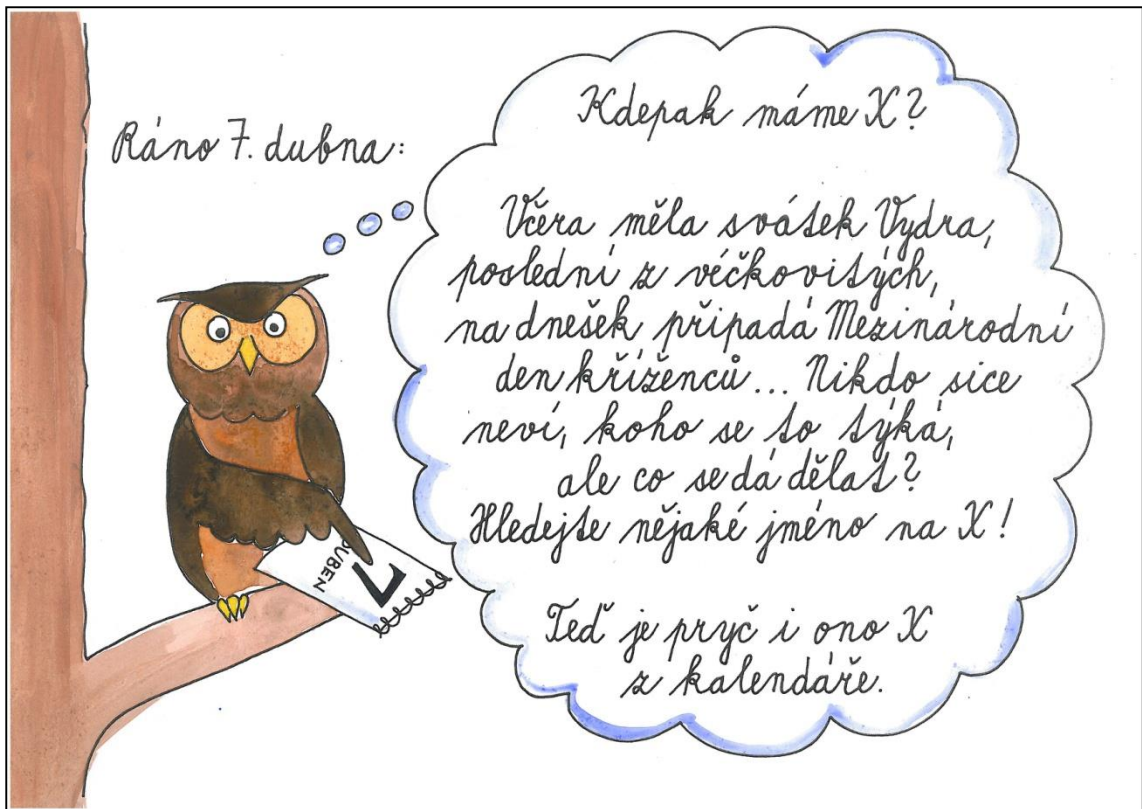 Ráno 7. dubna:
Kdepak máme X?
Včera měla svátek Vydra,
poslední z véčkovitých,
na dnešek připadá Mezinárodní
den kříženců... Nikdo sice
neví, koho se to týká,
ale co se dá dělat?
Hledejte nějaké jméno na X!
Teď je pryč i ono X
z kalendáře.
DUBEN
7